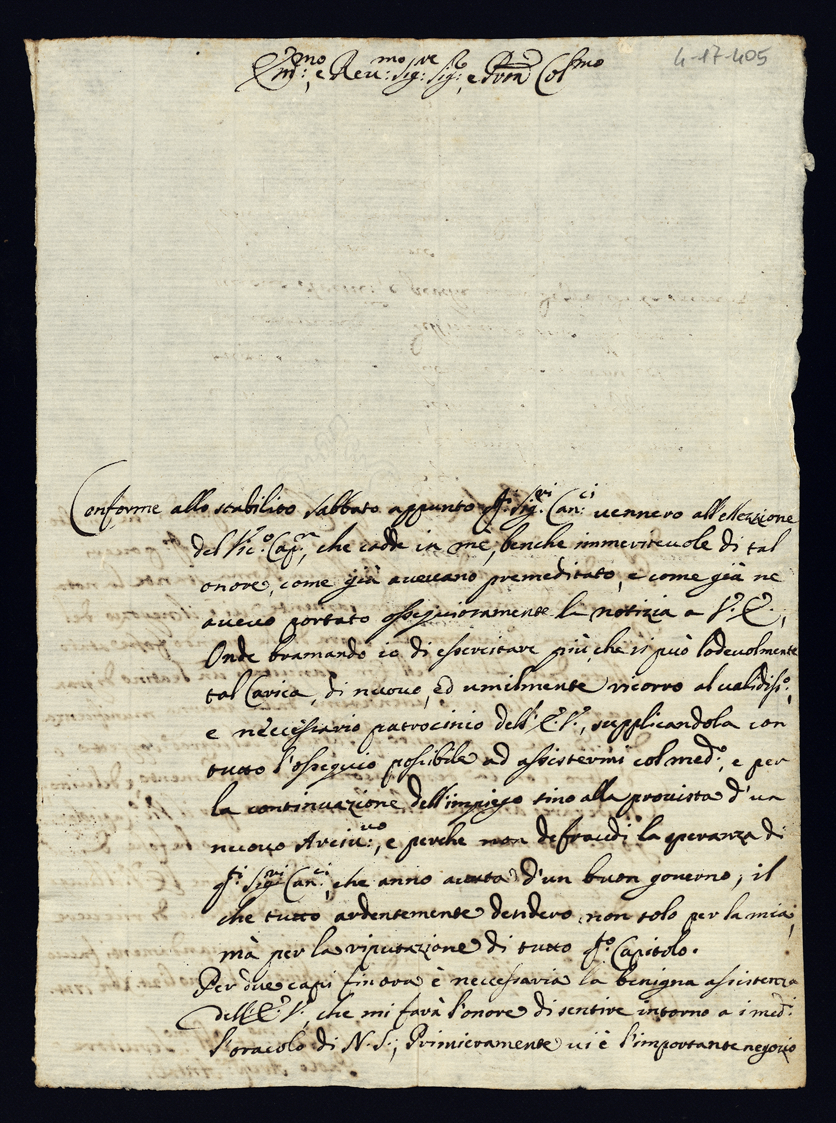 Em:mo, e Reu:mo Sig:re Sig:, e Pron Colmo
4-17-405
Conforme allo stabilito sabbato appunto q:ti Sig:ri Can:ci uennero all'elezzione
del Vic:o Cap:, che cadde in me, benche immeriteuole di tal
onore, come già aueuano premeditato, e come già ne
aueuo portato ossequiosamente la notizia a V: E:,
Onde bramando io di esercitare più, che si può lodeuolmente
tal Carica, di nuouo, ed umilmente ricorro al ualidiss:o,
e neccessario patrocinio dell' E: V:, supplicandola con
tutto l'ossequio possibile ad assistermi col med:o, e per
la continuazione dell'impiego sino alla prouista d'un
nuouo Arciu:uo, e perche non defraudi la speranza di
q:ti Sig:ri Can:ci, che anno d'un buon gouerno, il
che tutto ardentemente desidero, non solo per la mia,
mà per la riputazione di tutto q:o Capitolo.
Per due capi finora è neccessaria la benigna assistenza
dell'E: V:, che mi farà l'onore di sentire intorno a i med:i
l'oracolo di N. S.; Primieramente ui è l'importante negozio